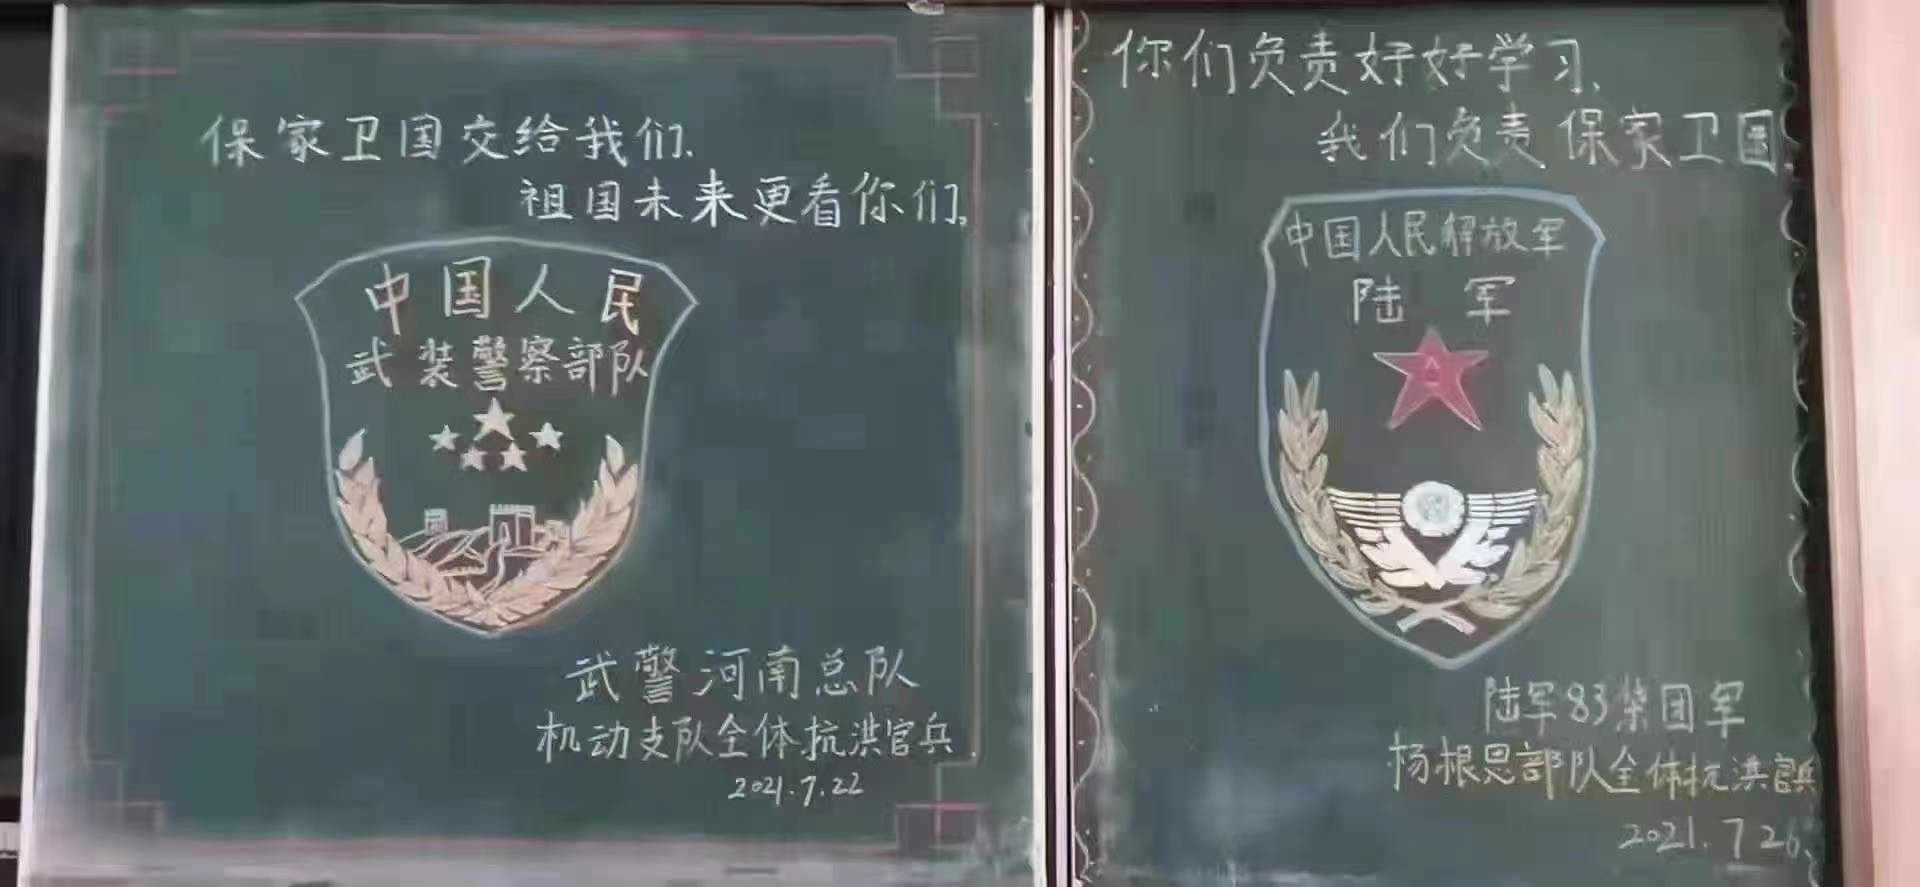 保家卫国交给我们、
祖国未来更看你们。
中国人民
武装警察部队
武警河南总队
机动支队全体抗洪官兵.
2021.7.22
你们负责好好学习、
我们负责保家卫国
中国人民解放军
陆军
八一
陆军83集团军
杨根思部队全体抗洪官兵
2021.7 26、